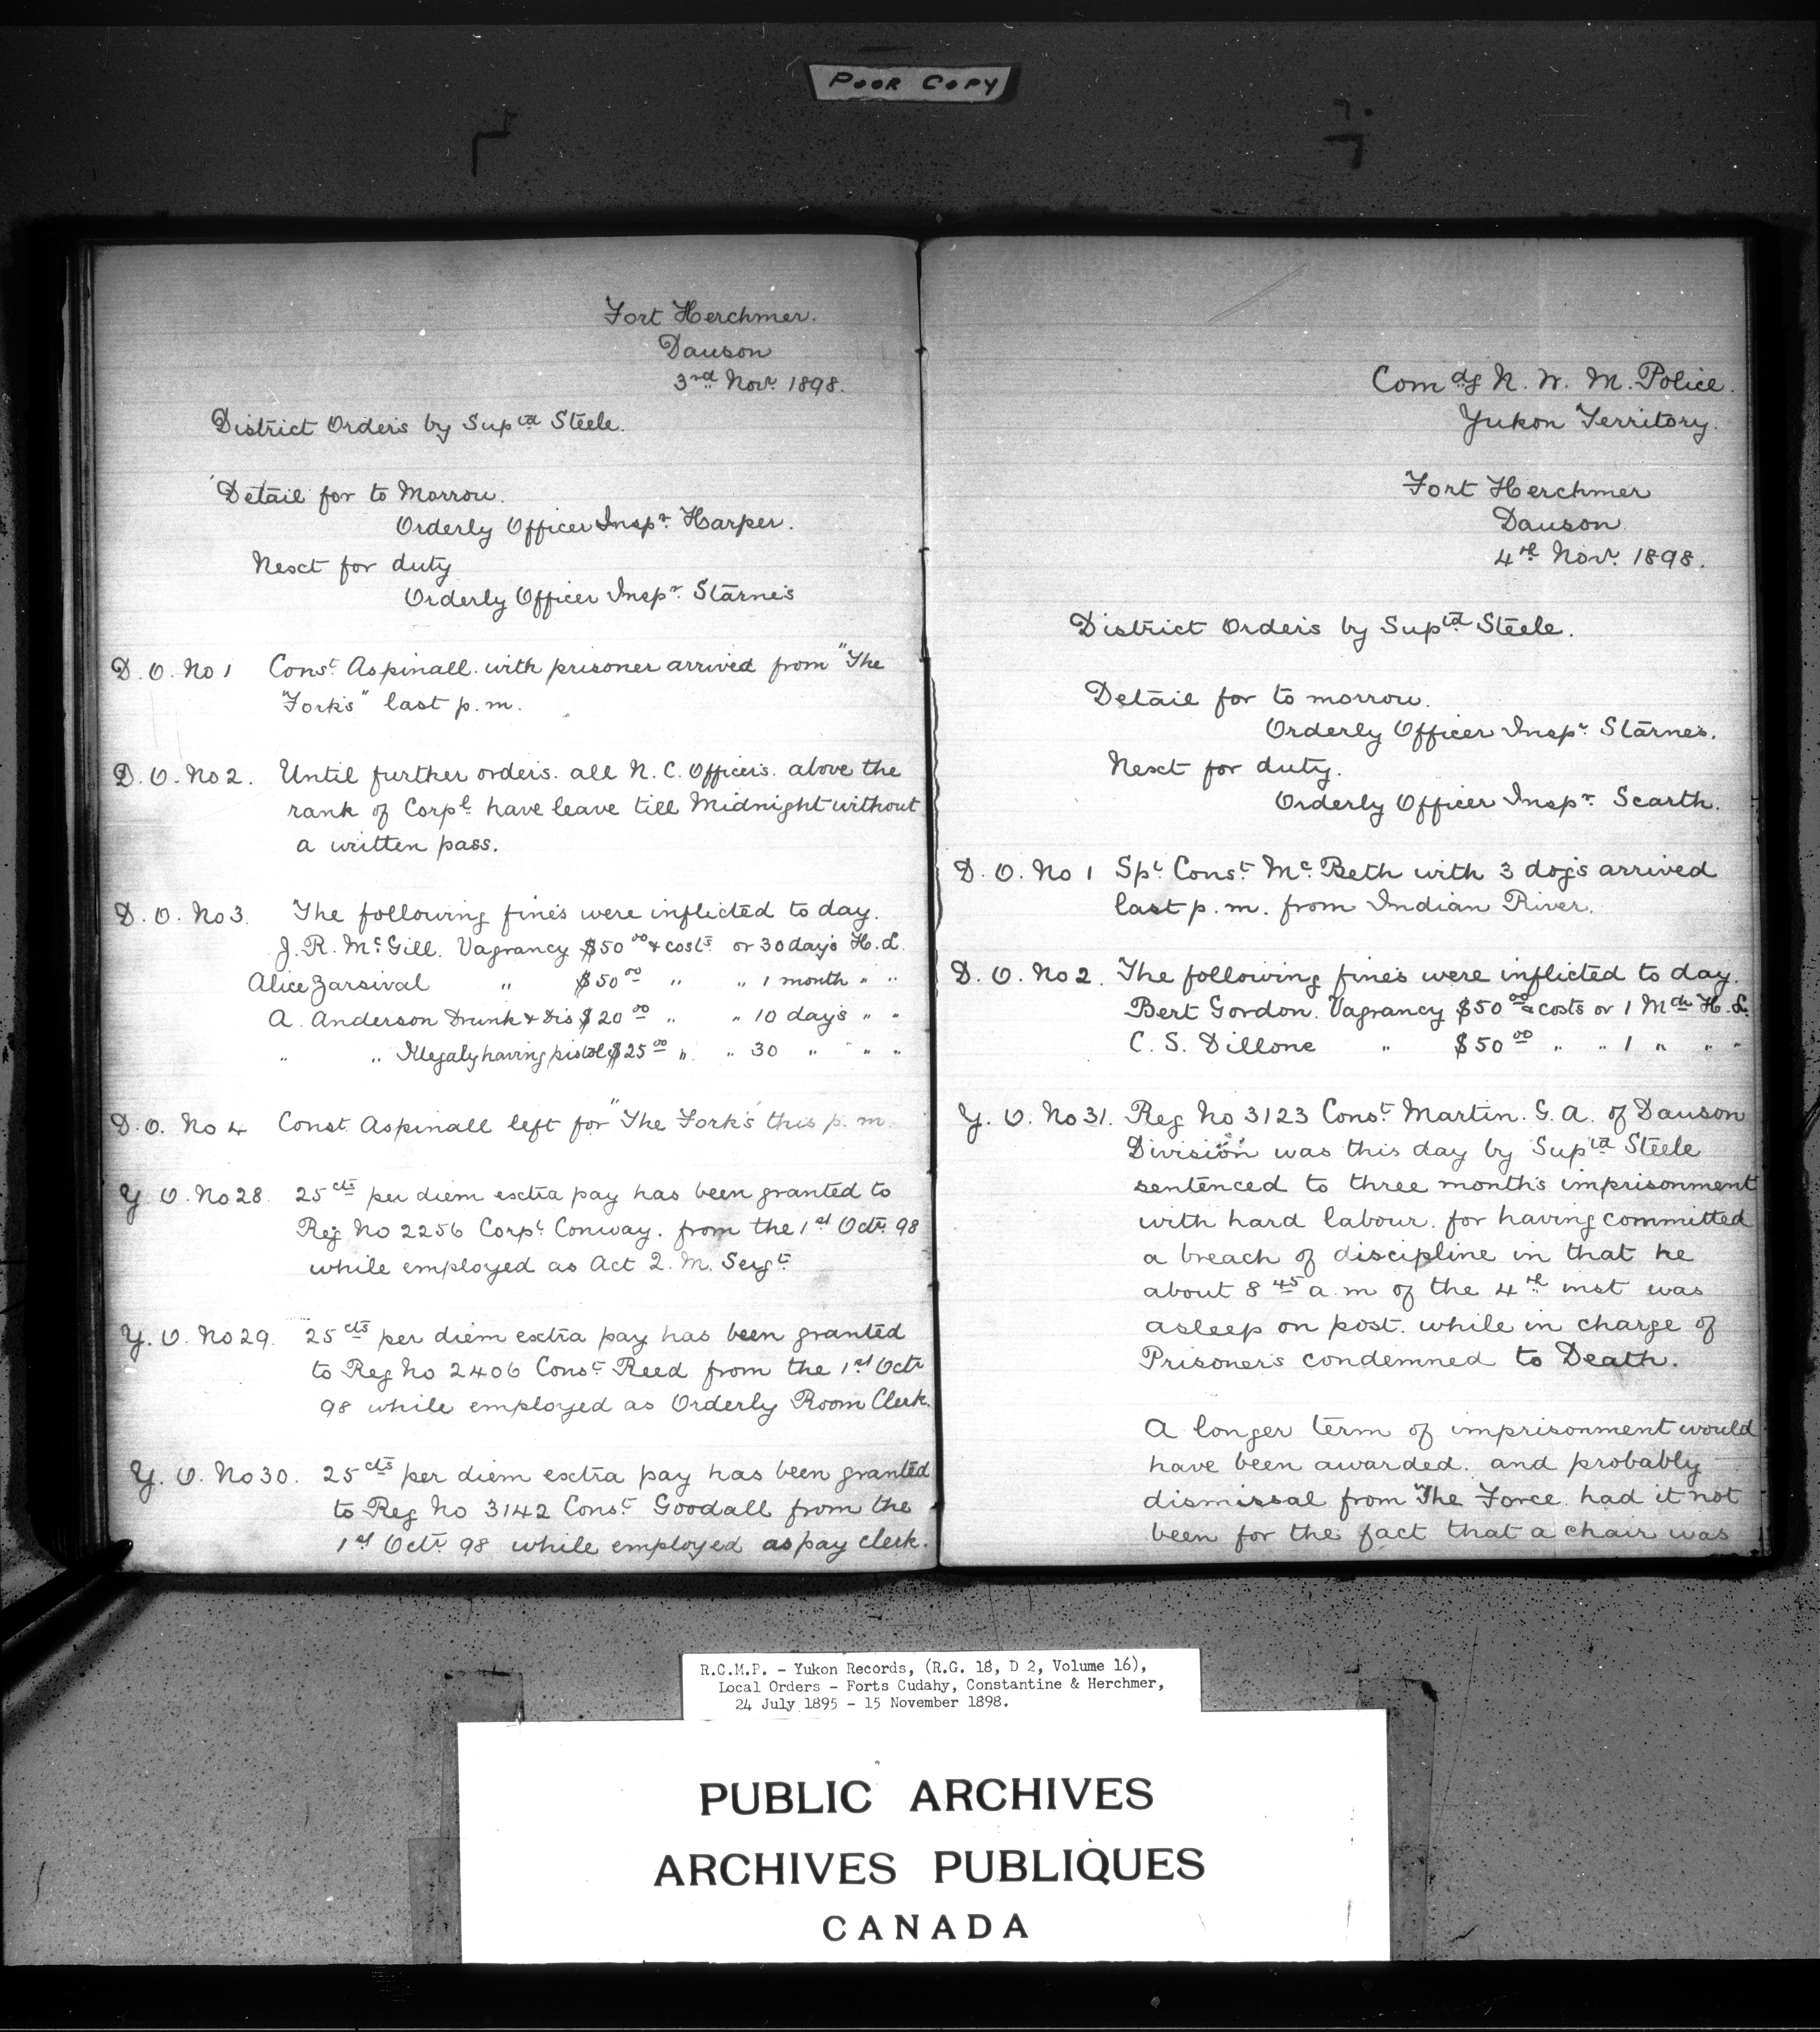 POOR COPY
Fort Herchmer.
Dawson
3rd Nov. 1898.
District Orders by Suptd Steele.
Detail for to Morrow.
Orderly Officer Inspr. Harper.
Next for duty
Orderly Officer Inspr. Starnes
D. O. No 1 Const. Aspinall. with prisoner arrived from "The
"Forks" last p.m.
D. O. No 2. Until further orders. all N. C. Officers. above the
rank of Corpl. have leave till Midnight without
a written pass.
D. O. No 3. The following fines were inflicted to day.
J. R. McGill. Vagrancy $50 00 & costs or 30 days H. L.
Alice Zarsival " $50 00 " " 1 month " "
A. Anderson Drunk & Dis $20 00 " " 10 days " "
" " Illegaly having pistol $25 00 " " 30 " " "
D. O. No 4 Const. Aspinall left for "The Forks" this p. m.
Y. O. No 28. 25 cts per diem extra pay has been granted to
Reg No 2256 Corpl. Conway. from the 1st Octr. 98
while employed as Act Q. M. Sergt.
Y. O. No 29. 25 cts per diem extra pay has been granted
to Reg No 2406 Const. Reed from the 1st Octr
98 while employed as Orderly Room Clerk.
Y. O. No 30. 25 cts per diem extra pay has been granted
to Reg No 3142 Const. Goodall from the
1st Octr. 98 while employed as pay clerk.
Comdg N. W. M. Police.
Yukon Territory.
Fort Herchmer
Dawson
4th Nov. 1898.
District Orders by Suptd Steele.
Detail for to morrow.
Orderly Officer Inspr. Starnes.
Next for duty.
Orderly Officer Inspr. Scarth.
D. O. No 1 Spl. Const. Mc. Beth with 3 dogs arrived
last p.m. from Indian River.
D. O. No 2. The following fines were inflicted to day.
Bert Gordon. Vagrancy $50 00 & costs or 1 Mth H. L.
C. S. Dillone " $50 00 " " 1 " " "
Y. O. No 31. Reg No 3123 Const. Martin. G. A. of Dawson
Division was this day by Suptd Steele
sentenced to three months imprisonment
with hard labour. for having committed
a breach of discipline in that he
about 8 45 a m of the 4th inst was
asleep on post. while in charge of
Prisoners condemned to Death.
A longer term of imprisonment would
have been awarded. and probably
dismissal from The Force had it not
been for the fact that a chair was
R.C.M.P. - Yukon Records, (R.G. 18, D 2, Volume 16),
Local Orders - Forts Cudahy, Constantine & Herchmer,
24 July 1895 - 15 November 1898.
PUBLIC ARCHIVES
ARCHIVES PUBLIQUES
CANADA